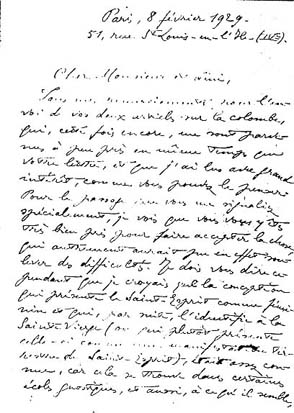 Paris, 8 février 1929.
51, rue St Louis-en-l'Ile (IVe)
Cher Monsieur et ami,
Tous mes remerciements pour l'en-
voi de vos deux articles sur la colombe,
qui, cette fois encore, me sont parve-
nus à peu près en même temps que
votre lettre, et que j'ai lus avec grand
intérêt, comme vous pouvez le penser.
Pour le passage que vous me signalez
spécialement, je vois que vous vous y êtes
très bien pris, pour faire accepter la chose
qui autrement aurait pu en effet sou-
lever des difficultés. Je dois vous dire ce-
pendant que je croyais que la conception
qui présente le Saint-Esprit comme fémi-
nin et qui, par suite, l'identifie à la
Sainte Vierge (ou qui plutôt présente
celle-ci comme une manifestation
du Saint-Esprit), était assez con-
nue, car cela se trouve dans certaines
écoles gnostiques, et aussi, à ce qu'il semble,